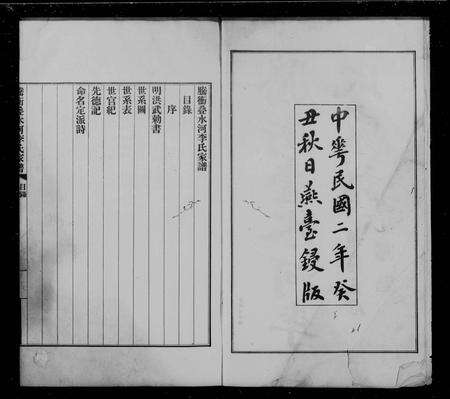 中華民國二年癸
丑秋日燕臺鋟版
騰衝叠水河李氏家譜
目錄
序
明洪武勅書
世系圖
世系表
世官紀
先德記
命名定派詩